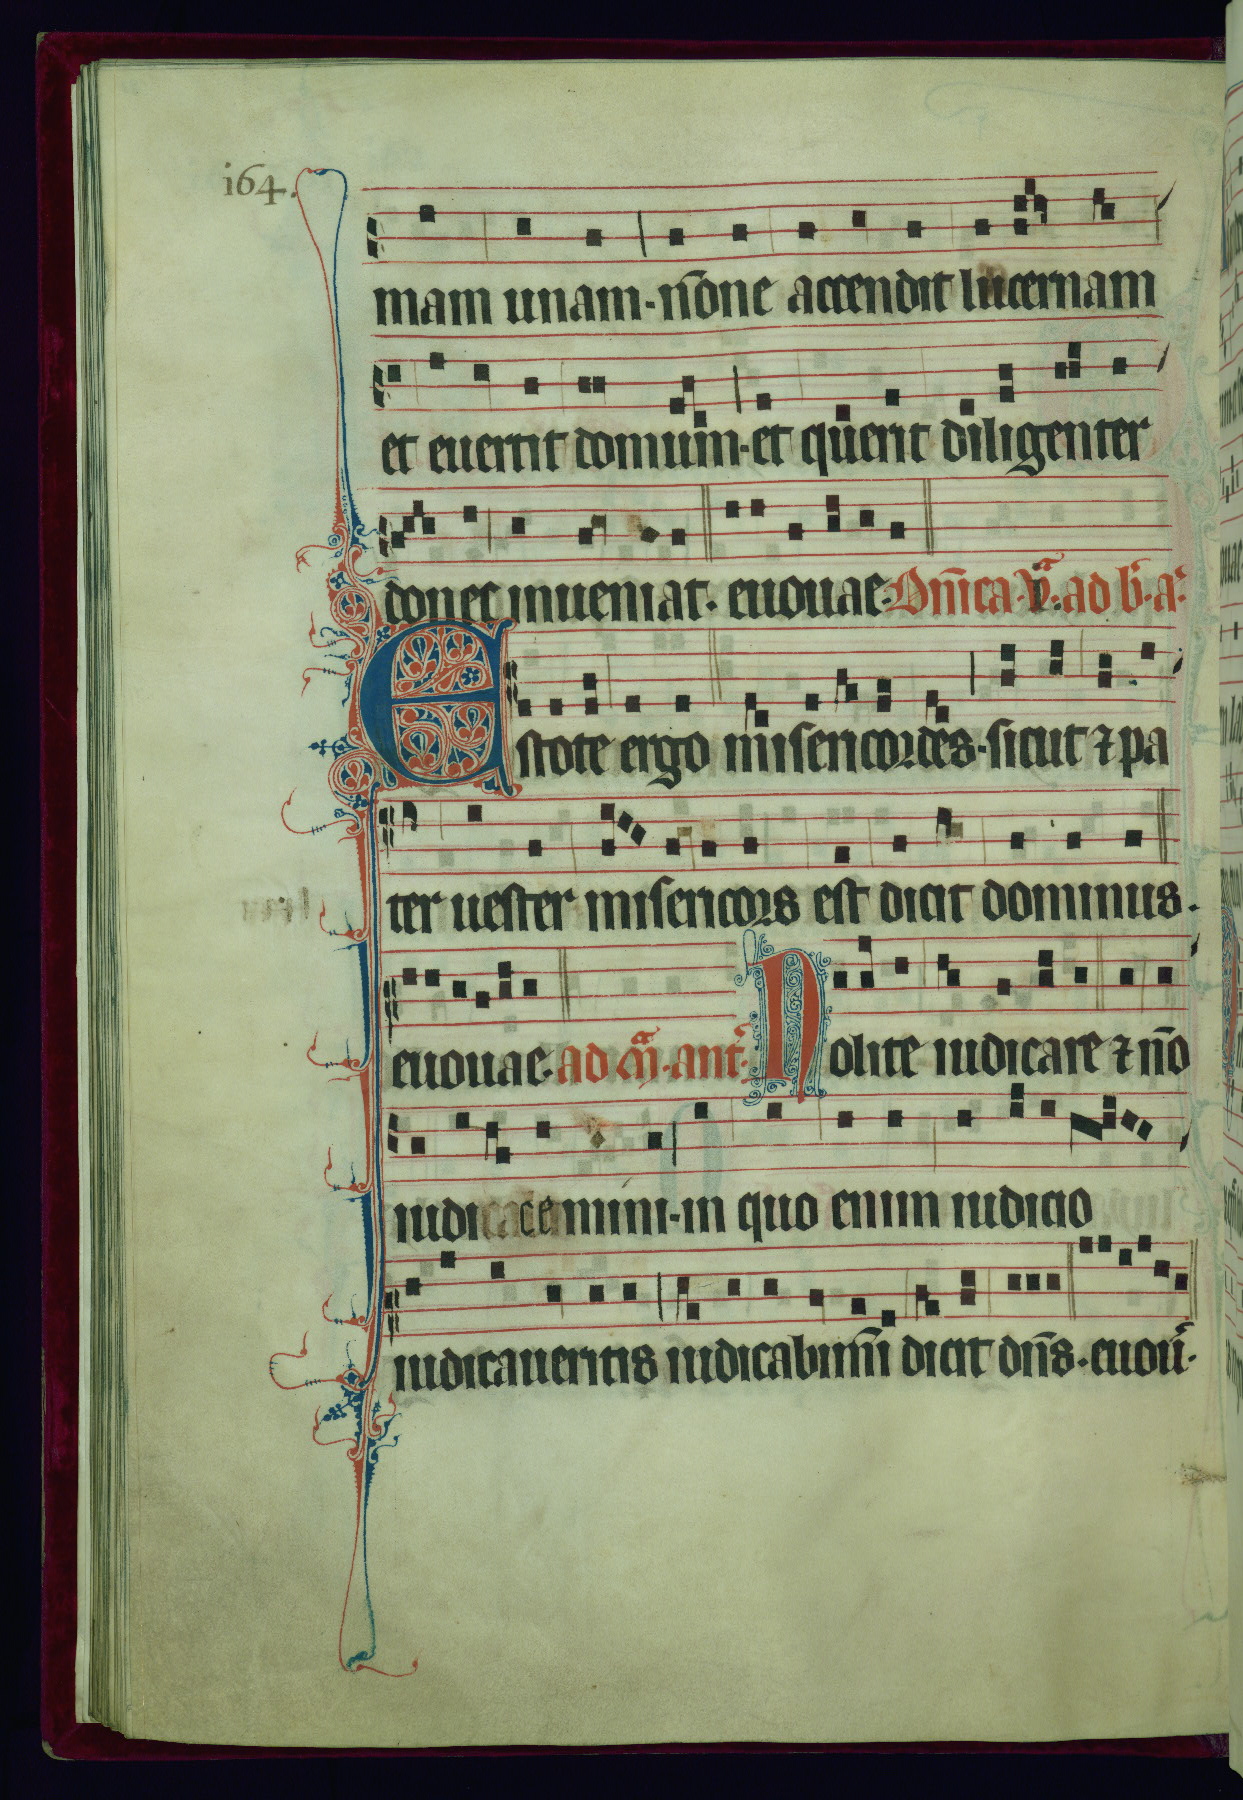 164.
mam unam·nōne accendit lucernam
et euertit domum·et querit diligenter
donec inueniat· euouae· Dn̄ica · ad b̄·a
Estote ergo misericordes·sicut ⁊ pa
ter uester misericors est dicit dominus·
euouae· ad ant̄· Nolite iudicare ⁊ nō
iudicemini·in quo enim iudicio
iudicaueritis iudicabimī dicit dn̄s·euou·